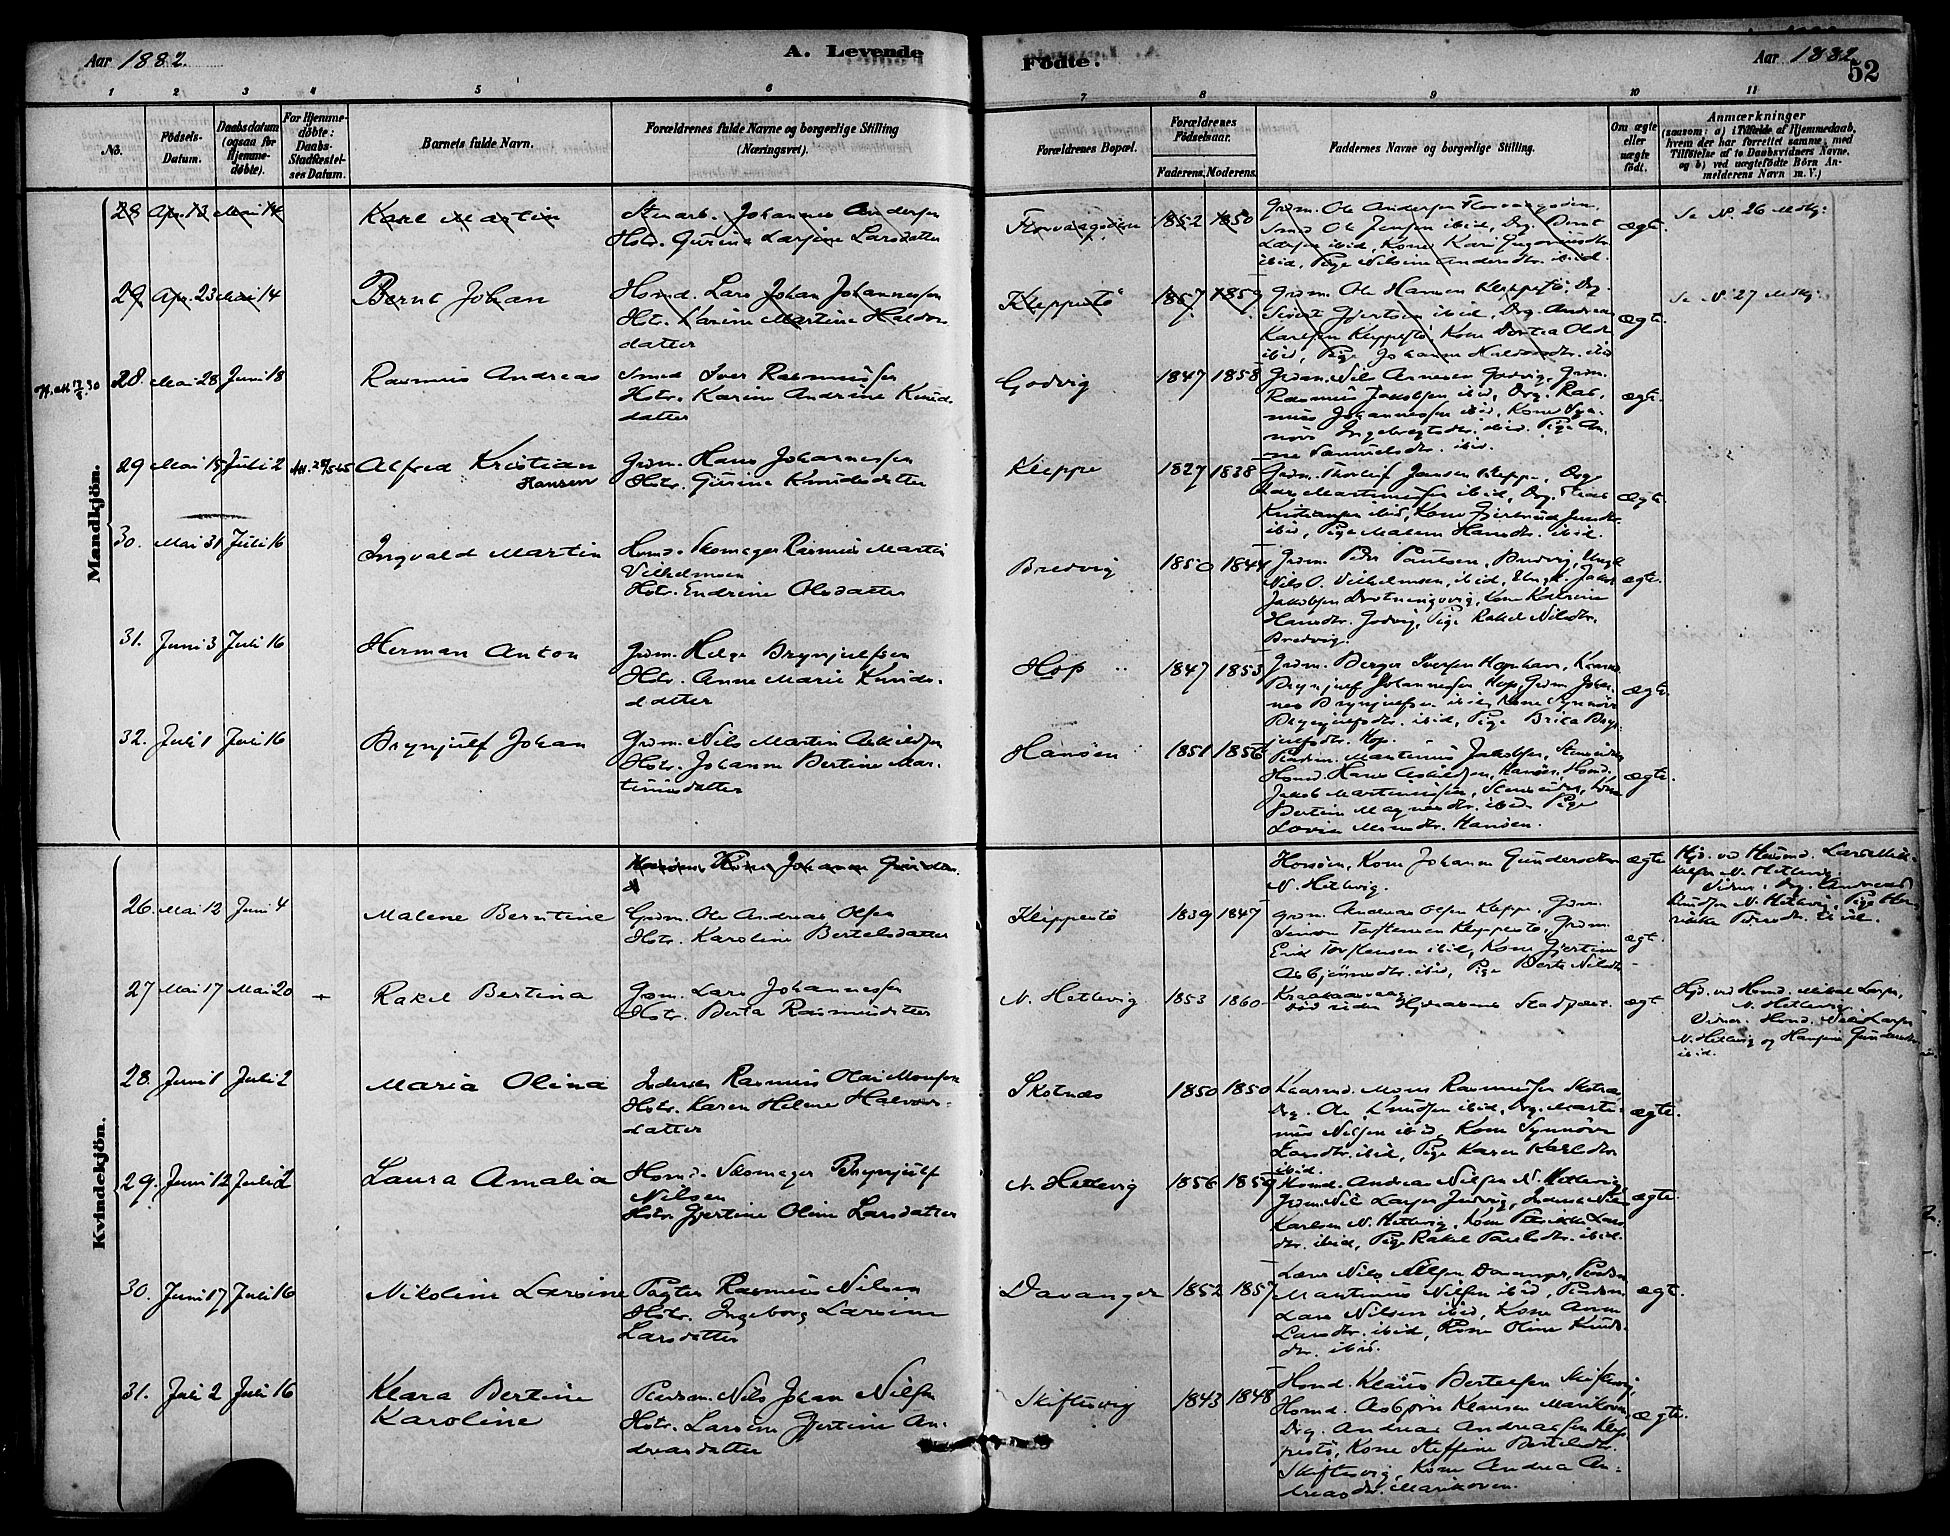 Aar 1882.
A. Levende
Fødte.
Aar 1882
52
1 2 3 4 5 6 7 8 9 10 11
No.
Fødsels-
Datum.
Daabsdatum
(ogsaa for
Hjemme-
døbte).
For Hjemme-
døbte:
Daabs-
Stadfæstel-
ses Datum.
Barnets fulde Navn.
Forældrenes fulde Navne og borgerlige Stilling
(Næringsvei).
Forældrenes Bopæl.
Forældrenes
Fødselsaar.
Faderens. Moderens.
Faddernes Navne og borgerlige Stilling.
Om ægte
eller
uægte
født.
Anmærkninger
(saasom: a) i Tilfælde af Hjemmedaab,
hvem der har forrettet samme, med
Tilføielse af to Daabsvidners Navne,
og b) ved uægtefødte Børn An-
melderens Navn m. V.)
Mandkjøn.
28 Apr. 13 Mai 14 Karl Martin
Stenarb. Johannes Andersen
Hstr. Gurine Larsine Larsdatter
1852 1850
Smed Ole Jensen ibid,
ibid, Pige Nilsine Andersdtr. ibid.
ægte
Se N. 26 Mdkj:
29 Apr. 23 Mai 14 Bernt Johan
Hsmd. Lars Johan Johannessen
Hstr. Karine Martine Haldors
datter
Kleppestø
1857 1859
Grdm. Ole Hansen Kleppestø, Drg.
Sivert Gjertsen ibid, Drg. Andreas
Karlsen Kleppestø, Kone Dortea Olsdr
ibid, Pige Johanna Haldorsdtr. ibid
ægte.
Se N. 27 Mdkj:
28. Mai 28 Juni 18 Rasmus Andreas
Smed Iver Rasmussen
Hstr. Karine Andrine Knuds-
datter
Godvig
1847 1858
Grdm. Nils Arnesen Godvig, Grdm.
Rasmus Jakobsen ibid, Drg. Ras-
mus Johannessen ibid, Kone Syn-
nøve Ingebregtsdtr. ibid. Pige An-
ne Samuelsdtr. ibid.
ægte.
29 Mai 15 Juli 2 Alfred Kristian
Hansen
Grdm. Hans Johannessen
Hstr. Gurine Knudsdatter
Kleppe
1827 1838
Grdm. Thorleif Jansen Kleppe, Drg
Lars Martinussen ibid, Drg.
Kristiansen ibid, Kone Gjertrud
ibid, Pige Malene Hansdtr. ibid.
ægte.
30. Mai 31 Juli 16 Ingvald Martin
Hsmd. Skomager Rasmus Martin
Vilhelmsen
Hstr. Endrine Olsdatter
Bredvig
1850 1844
Grdm. Peder Paulsen, Bredvig, Ungk.
Nils O. Vilhelmsen, ibid,
Jakobsen Drotningvig, Kone Katrine
Hansdtr. Godvig, Pige Rakel Nilsdtr.
Bredvig.
ægte.
31. Juni 3 Juli 16 Herman Anton
Grdm. Helge Brynjulfsen
Hstr. Anne Marie Knuds-
datter
Hop
1847 1853
Grdm. Berger Iversen
Brynjulf Johannessen Hop, Grdm. Johan-
nes Brynjulfsen ibid, Kone Synnøve
Brynjulfsdtr. ibid, Pige Brita Bryn-
julfsdtr. Hop.
ægte.
32. Juli 1 Juli 16 Brynjulf Johan
Grdm. Nils Martin Askildsen
Hstr. Johanna Bertine Mar-
tinusdatter
Hanøen
1851 1856
Pladsm. Martinus Jakobsen,
Hsmd. Hans Askildsen, Hanøen, Hsmd.
Jakob Martinussen, Kone
Bertine Magnesdtr. ibid Pige
Lovise Monsdtr. Hanøen.
ægte.
Kvindekjøn.
Hanøen, Kone Johanna Gundersdatter
N. Hetlevig.
ægte
Hjd. ved Husmd. Lars
N. Hetlevig.
Vidner: Drg. Andreas
Knudsen N. Hetlevig, Pige Hen-
rikke Pedersdtr. ibid.
26. Mai 12 Juni 4 Malene Berntine
Grdm. Ole Andreas Olsen
Hstr. Karoline Bertelsdatter
Kleppestø
1839 1847
Grdm. Andreas Olsen Kleppe, Grdm.
Simon Torstensen Kleppestø, Grdm.
Erik Torstensen ibid, Kone Gjertine
Asbjørnsdtr. ibid, Pige Berte Nilsdtr
ægt.
27 Mai 17 Mai 20 + Rakel Bertina
Grdm. Lars Johannessen
Hstr. Berta Rasmusdatter
N. Hetlevig
1853 1860
Død uden Stadfæst.
ægt
Hjd. ved Hsmd. Mikal Larsen,
N. Hetlevig
Vidner: Hsmd. Nils Larsen
N. Hetlevig og Hansine Gundersdtr
ibid.
28. Juni 1 Juli 2 Maria Olina
Inderst Rasmus Olai Monsen
Hstr. Karen Helene Halvors-
datter
Skotnes
1850 1850
Kaarmd. Mons Rasmussen Skotnes
Drg. Ole Knudsen ibid, Drg. Marti-
nus Nilsen ibid, Kone Synnøve
Larsdtr. ibid, Pige Karen Karlsdtr
ibid.
ægte.
29. Juni 12 Juli 2 Laura Amalia
Hsmd. Skomager Brynjulf
Nilsen
Hstr. Gjertine Oline Larsdatter
N. Hetlevig
1856 1859
Hsmd. Andreas Nilsen N. Hetlevig,
Grdm. Nils Larsen Juvig, Inderst Nils
Karlsen N. Hetlevig, Kone Petrikke Lars
dtr. ibid, Pige Rakel Paulsdtr. ibid.
ægte.
30. Juni 17 Juli 16 Nikoline Larsine
Pagter Rasmus Nilsen
Hstr. Ingeborg Larsine
Larsdatter
Davanger
1852 1857
Lærer Nils Nilsen Davanger, Pladsm.
Martinus Nilsen ibid, Pladsm.
Lars Nilsen ibid, Kone Anna
Larsdtr. ibid, Kone Oline Knuds-
dtr. ibid.
ægt.
31. Juli 2 Juli 16 Klara Bertine
Karoline
Pladsm. Nils Johan Nilsen
Hstr. Larsine Gjertine An-
dreasdatter
Skiftesvig
1843 1848
Hsmd. Klaus Bertelsen Skiftesvig,
Hsmd. Asbjørn Klausen Marikoven,
Drg. Andreas Andreassen Klep-
pestø, Kone Steffine Bertelsdtr.
Skiftesvig, Kone Andrea An-
dreasdtr. Marikoven.
ægte.